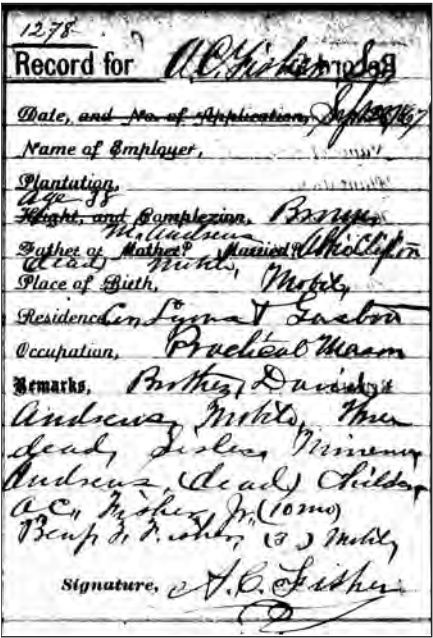 1278
Record for A. C. Fisher
Date, and No. of Application, Sept 28 1867
Name of Employer,
Plantation,
Age 38
Hight, and Complexion, Brown
McAndrews
Father or Mother? Married?
(dead) Mobile,
Place of Birth, Mobile,
Residence Cn &
Occupation, Practical Mason
Remarks, Brother, David
Andrews, Mobile, three
dead, Sister,
Andrews, (dead) Children
A.C. Fisher, Jr. (10 mo)
Benj F. Fisher, (3) Mobile,
Signature, A. C. Fisher